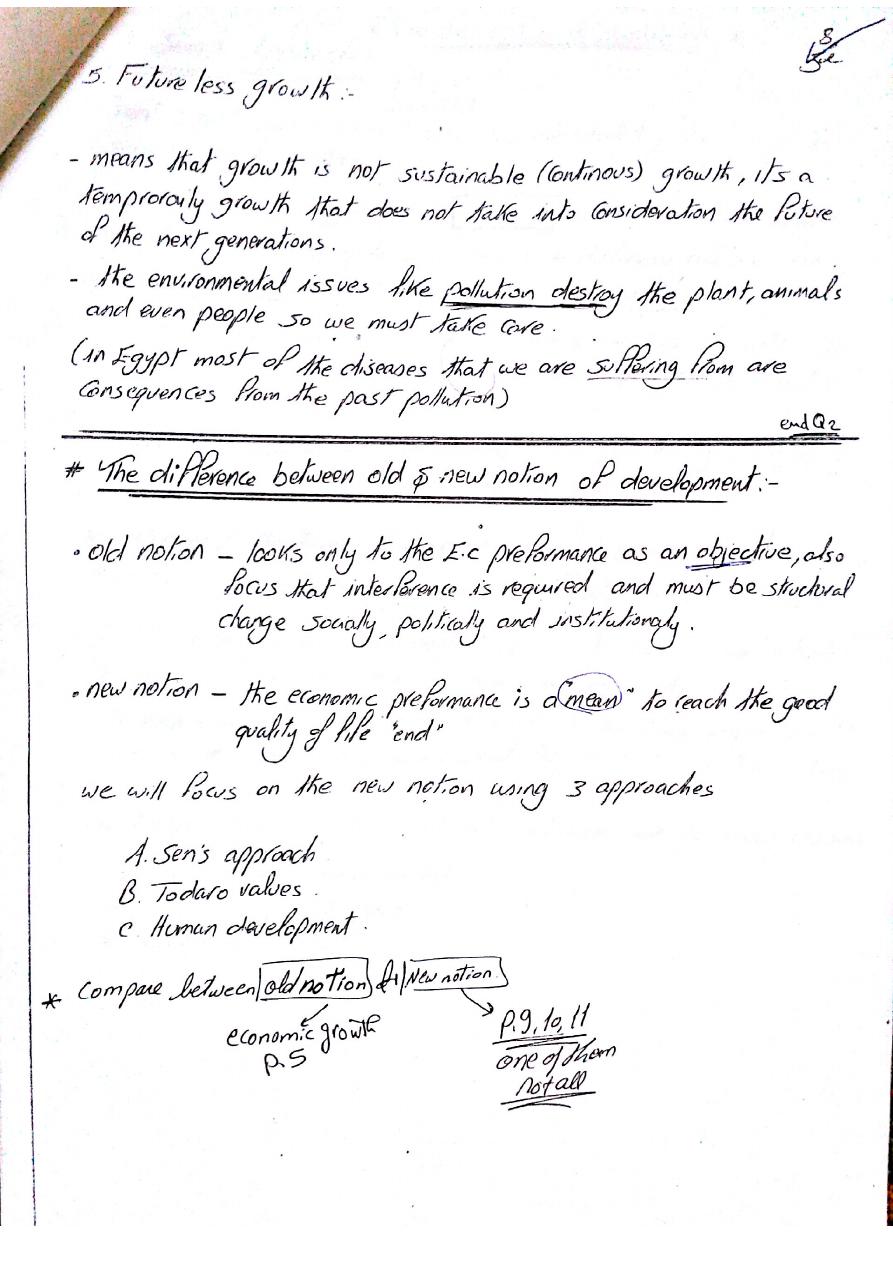 8
5. Future less growth :-
- means that growth is not sustainable (continous) growth, it's a
temproraly growth that does not take into consideration the future
of the next generations.
- the environmental issues like pollution destroy the plant, animals
and even people so we must take care.
(in Egypt most of the diseases that we are suffering from are
consequences from the past pollution)
end Q2
# The difference between old & new notion of development:-
• old notion – looks only to the E.c preformance as an objective, also
focus that interference is required and must be structural
change socially, politically and institutionaly.
• new notion – the economic preformance is a "mean" to reach the good
quality of life "end"
we will focus on the new notion using 3 approaches
A. Sen's approach
B. Todaro values.
C. Human development.
* Compare between old notion & New notion
economic growth
p.5
p.9, 10, 11
one of them
not all